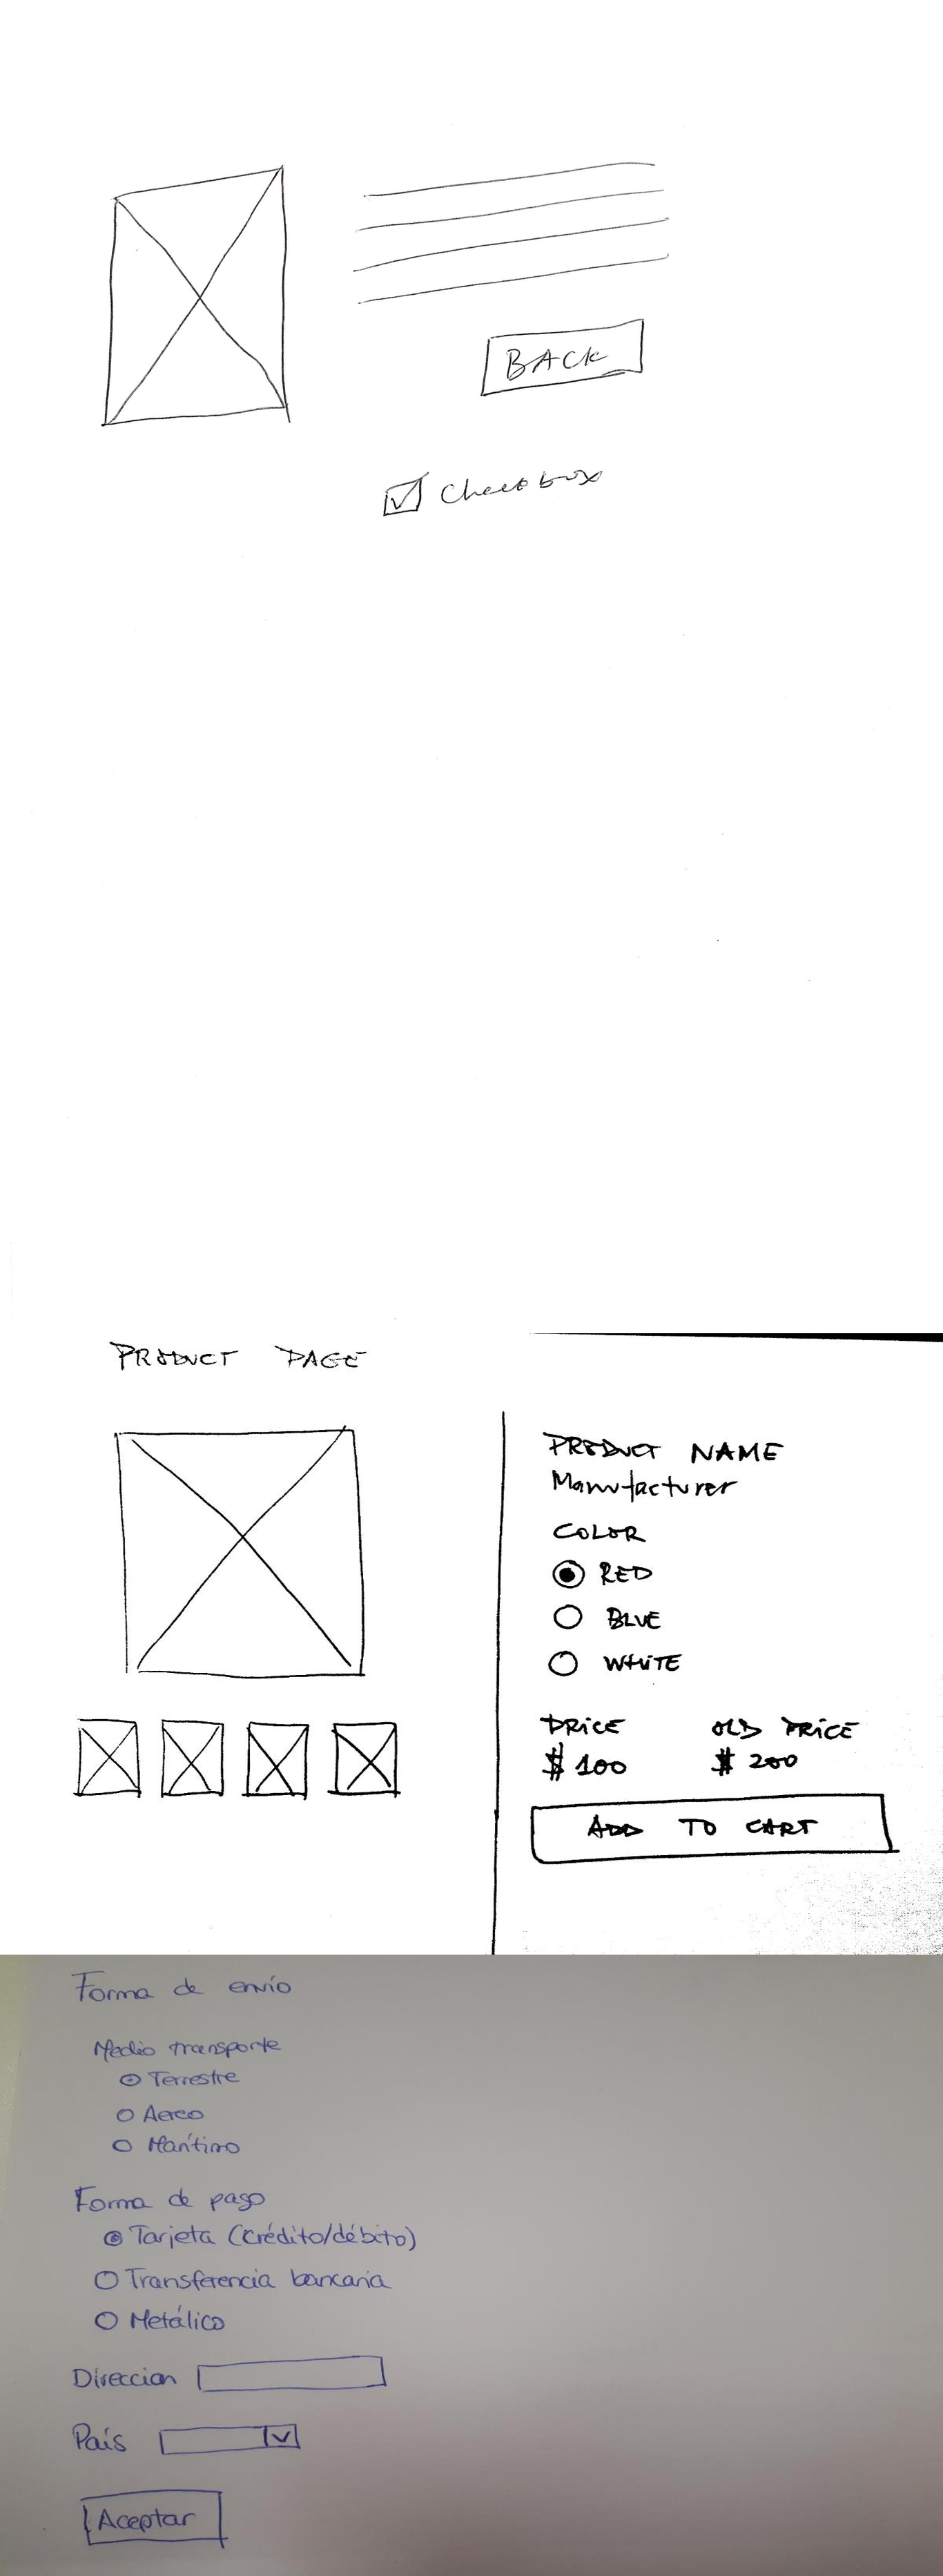 BACK
Checkbox
PRODUCT PAGE
PRODUCT NAME
Manufacturer
COLOR
RED
BLUE
WHITE
PRICE OLD PRICE
$100 $200
ADD TO CART
Forma de envío
Medio transporte
Terrestre
Aereo
Marítimo
Forma de pago
Tarjeta (crédito/débito)
Transferencia bancaria
Metálico
Direccion
País
Aceptar